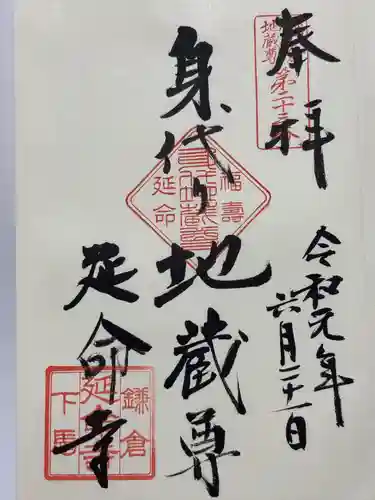 奉拝
地蔵尊
第二十三番
令和元年
六月二十一日
身代り地蔵尊
福壽
延命
延命寺
鎌倉
下馬